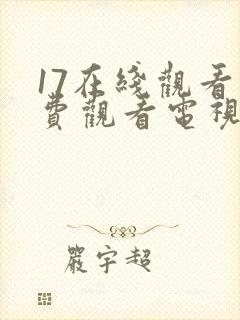 17在綫觀看
費觀看電視
嚴宇超